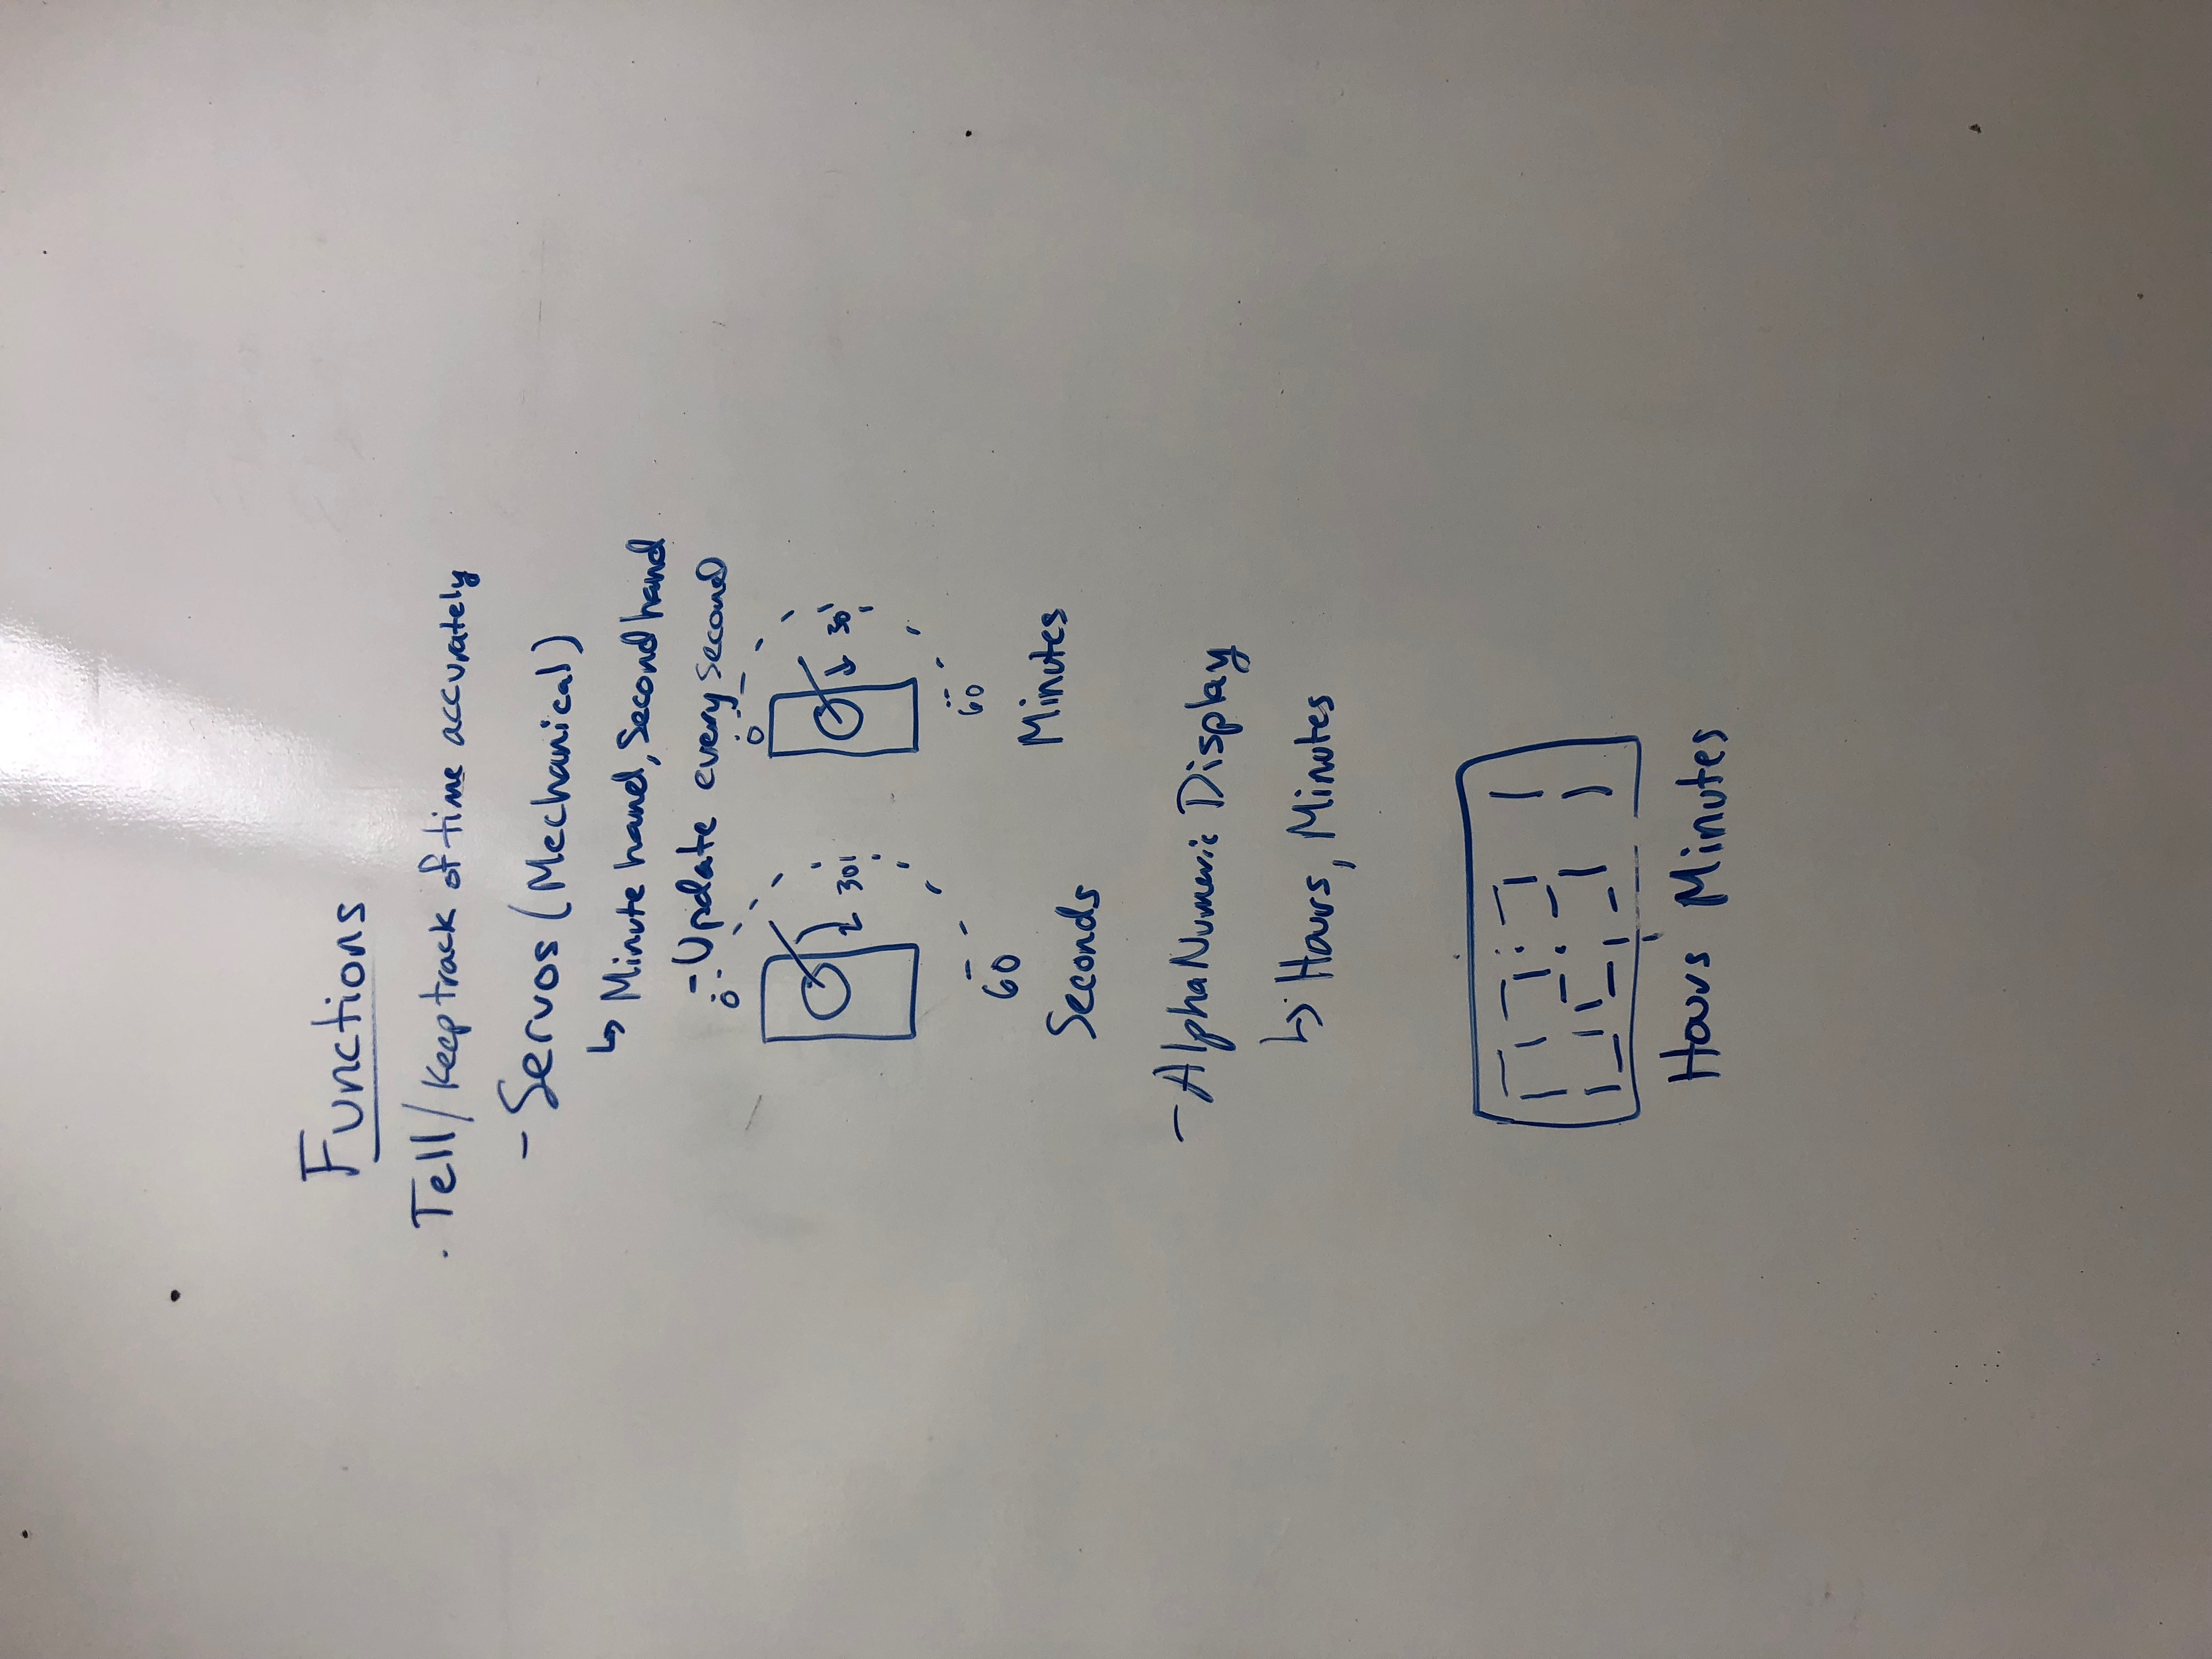 Functions
· Tell/Keep track of time accurately
- Servos (Mechanical)
↳ Minute hand, Second hand
- Update every second
0 0
30 30
60 60
Seconds Minutes
- AlphaNumeric Display
↳ Hours, Minutes
02:31
Hours Minutes